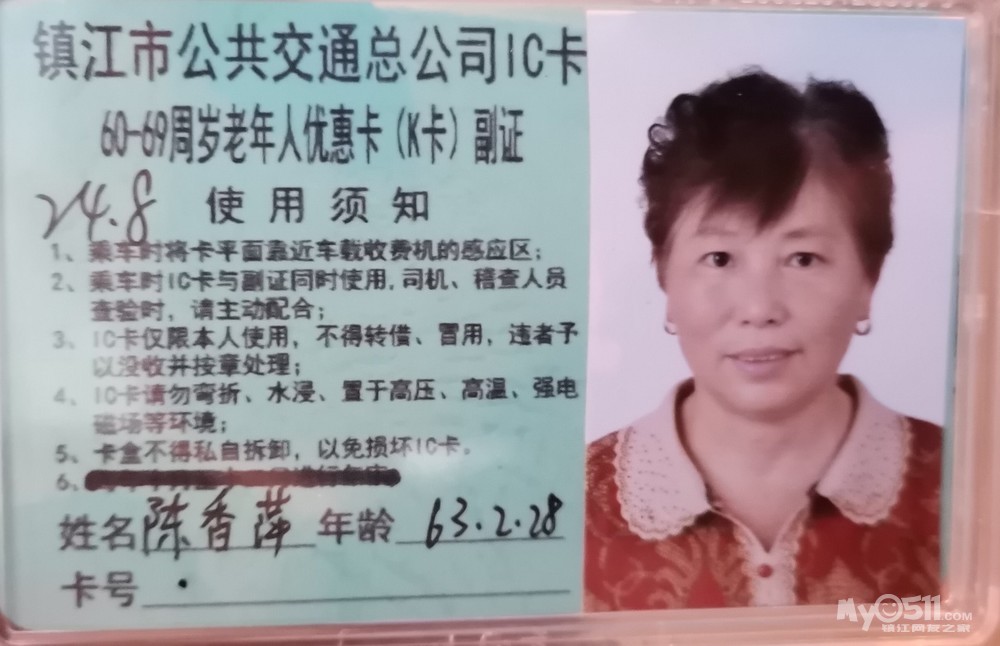 镇江市公共交通总公司IC卡
60-69周岁老年人优惠卡（K卡）副证
24.8 使用须知
1、乘车时将卡平面靠近车载收费机的感应区；
2、乘车时IC卡与副证同时使用,司机、稽查人员
查验时，请主动配合；
3、IC卡仅限本人使用，不得转借、冒用，违者予
以没收并按章处理；
4、IC卡请勿弯折、水浸、置于高压、高温、强电
磁场等环境；
5、卡盒不得私自拆卸，以免损坏IC卡。
6、
姓名 陈香萍 年龄 63.2.28
卡号
My0511.COM
镇江网友之家